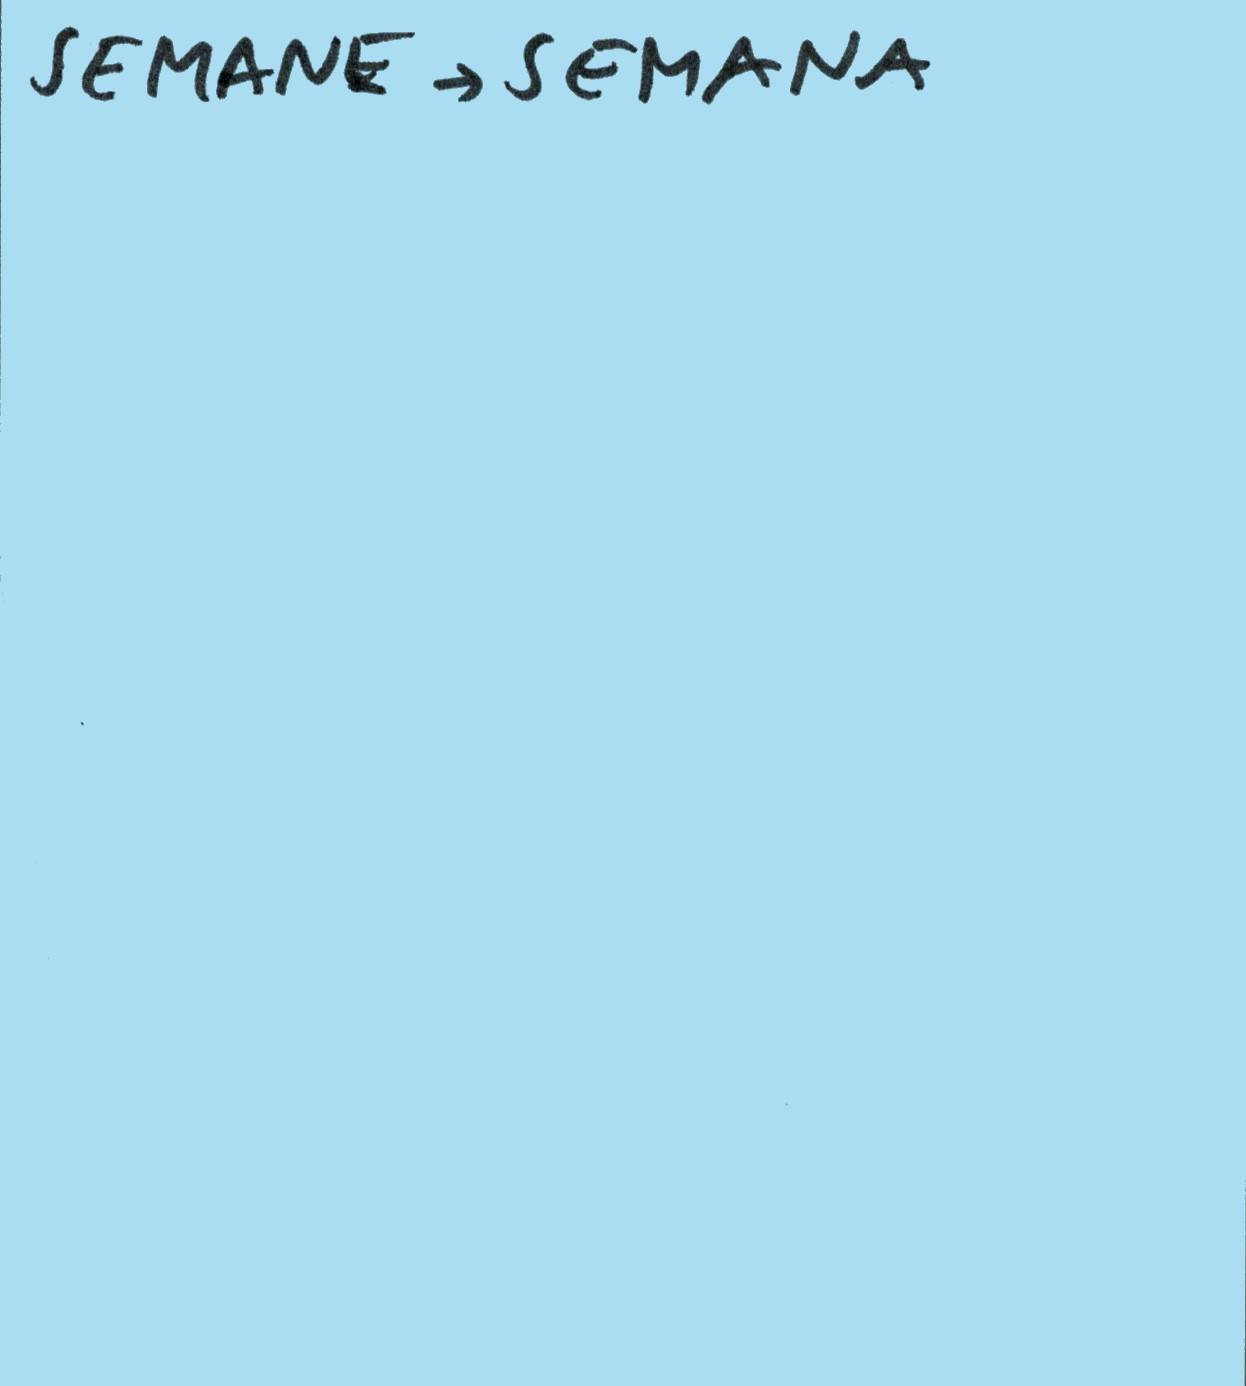 SEMANE → SEMANA